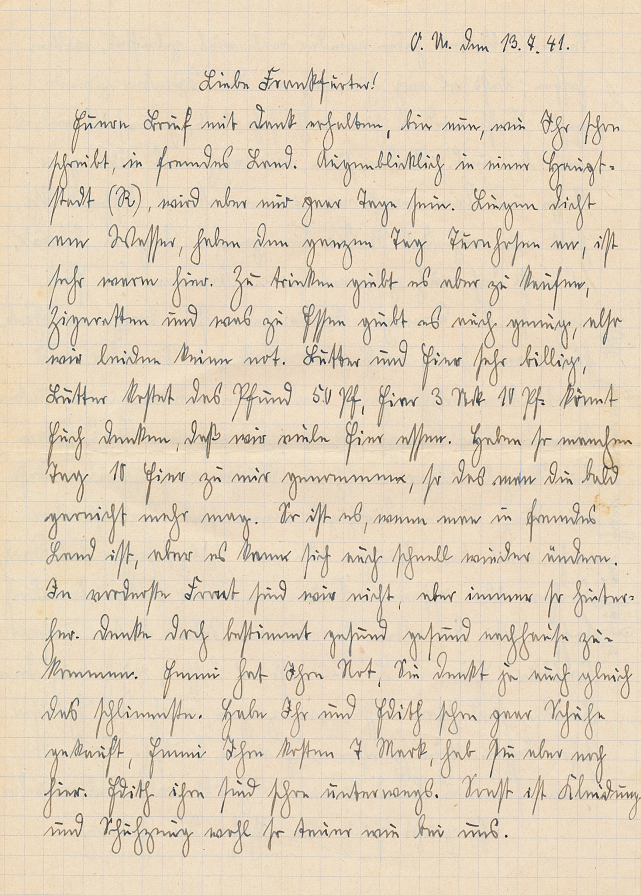 O. U. den 13.7.41.
Liebe Frankfurter!
Euern Brief mit Dank erhalten, bin nun, wie Ihr schon
schreibt, in fremdes Land. Augenblicklich in einer Haupt-
stadt (R), wird aber nur paar Tage sein. Liegen dicht
am Wasser, haben den ganzen Tag Turnhosen an, ist
sehr warm hier. Zu trinken giebt es aber zu kaufen,
Zigaretten und was zu Essen giebt es auch genug, also
wir leiden keine not. Butter und Eier sehr billig,
Butter kostet das Pfund 50 Pf, Eier 3 Stk 10 Pf. könnt
Euch denken, daß wir viele Eier essen. Haben so manchen
Tag 10 Eier zu mir genommen, so das man die bald
garnicht mehr mag. So ist es, wenn man in fremdes
Land ist, aber es kann sich auch schnell wieder ändern.
In vorderste Front sind wir nicht, aber immer so hinter-
her. Denke doch bestimmt gesund gesund nachhause zu-
kommen. Emmi hat Ihre Not, Sie denkt ja auch gleich
das schlimmste. Habe Ihr und Edith schon paar Schuhe
gekauft, Emmi Ihre kosten 7 Mark, hab sie aber noch
hier. Edith ihre sind schon unterwegs. Sonst ist Kleidung
und Schuhzeug wohl so teuer wie bei uns.